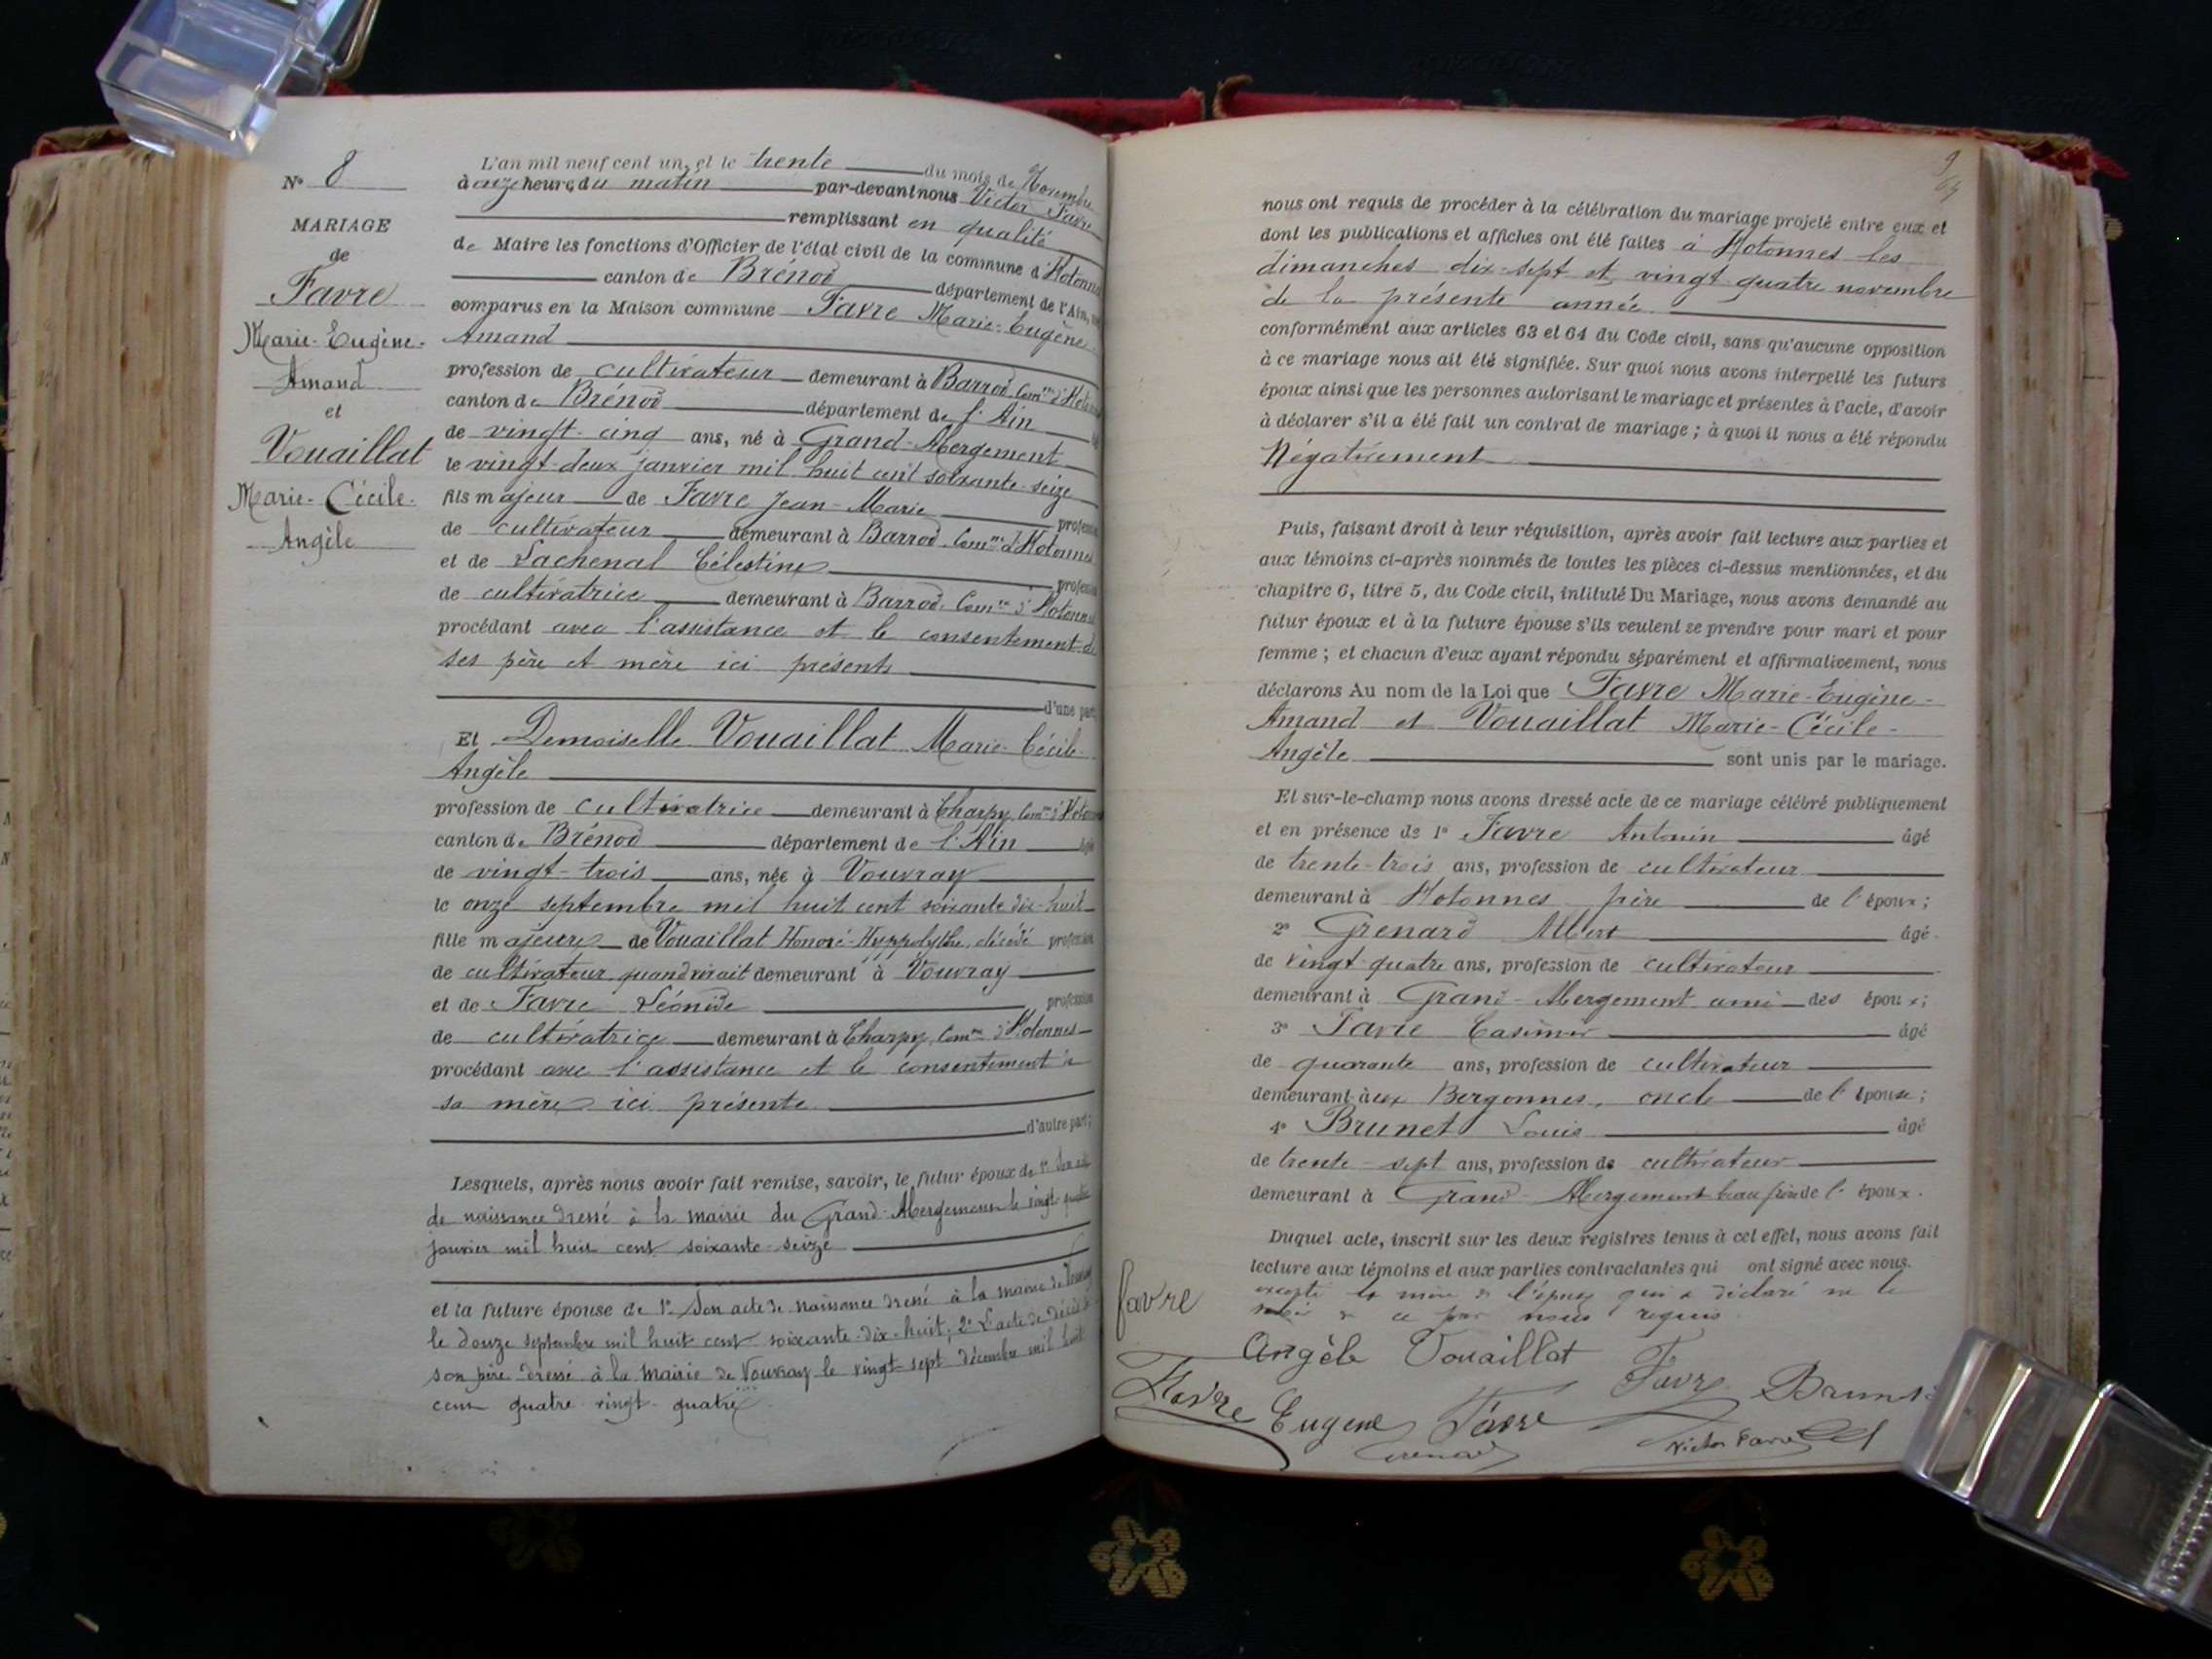 N° 8
MARIAGE
de
Favre
Marie-Eugène-
Amand
et
Vouaillat
Marie-Cécile-
Angèle
L'an mil neuf cent un, et le trente du mois de Novembre
à onze heures du matin par-devant nous Victor Favre
remplissant en qualité
de Maire les fonctions d'Officier de l'état civil de la commune d'Hotonnes
canton de Brénod département de l'Ain,
comparus en la Maison commune Favre Marie-Eugène
Amand
profession de cultivateur demeurant à Barrod, Comne d'Hotonnes
canton de Brénod département de l'Ain
de vingt-cinq ans, né à Grand-Abergement
le vingt-deux janvier mil huit cent soixante-seize
fils majeur de Favre Jean-Marie profession
de cultivateur demeurant à Barrod, Comne d'Hotonnes
et de Lachenal Célestine profession
de cultivatrice demeurant à Barrod, Comne d'Hotonnes
procédant avec l'assistance et le consentement de
ses père et mère ici présents
d'une part;
Et Demoiselle Vouaillat Marie-Cécile-
Angèle
profession de cultivatrice demeurant à Charpy, Comne d'Hotonnes
canton de Brénod département de l'Ain âgée
de vingt-trois ans, née à Vouvray
le onze septembre mil huit cent soixante dix-huit
fille majeure de Vouaillat Honoré-Hyppolythe, décédé profession
de cultivateur quand vivait demeurant à Vouvray
et de Favre Léonide profession
de cultivatrice demeurant à Charpy, Comne d'Hotonnes
procédant avec l'assistance et le consentement de
sa mère ici présente
d'autre part;
Lesquels, après nous avoir fait remise, savoir, le futur époux de 1° Son acte
de naissance dressé à la mairie du Grand-Abergement le vingt-quatre
janvier mil huit cent soixante-seize
et la future épouse de 1° Son acte de naissance dressé à la mairie de Vouvray
le douze septembre mil huit cent soixante-dix-huit; 2° L'acte de décès de
son père dressé à la mairie de Vouvray le vingt-sept décembre mil huit
cent quatre-vingt-quatre
9
nous ont requis de procéder à la célébration du mariage projeté entre eux et
dont les publications et affiches ont été faites à Hotonnes les
dimanches dix-sept et vingt-quatre novembre
de la présente année
conformément aux articles 63 et 64 du Code civil, sans qu'aucune opposition
à ce mariage nous ait été signifiée. Sur quoi nous avons interpellé les futurs
époux ainsi que les personnes autorisant le mariage et présentes à l'acte, d'avoir
à déclarer s'il a été fait un contrat de mariage; à quoi il nous a été répondu
Négativement
Puis, faisant droit à leur réquisition, après avoir fait lecture aux parties et
aux témoins ci-après nommés de toutes les pièces ci-dessus mentionnées, et du
chapitre 6, titre 5, du Code civil, intitulé Du Mariage, nous avons demandé au
futur époux et à la future épouse s'ils veulent se prendre pour mari et pour
femme; et chacun d'eux ayant répondu séparément et affirmativement, nous
déclarons Au nom de la Loi que Favre Marie-Eugène-
Amand et Vouaillat Marie-Cécile-
Angèle sont unis par le mariage.
Et sur-le-champ nous avons dressé acte de ce mariage célébré publiquement
et en présence de 1° Favre Antonin âgé
de trente-trois ans, profession de cultivateur
demeurant à Hotonnes frère de l'époux;
2° Grenard Albert âgé
de vingt-quatre ans, profession de cultivateur
demeurant à Grand-Abergement ami des époux;
3° Favre Casimir âgé
de quarante ans, profession de cultivateur
demeurant aux Bergonnes, oncle de l'épouse;
4° Brunet Louis âgé
de trente-sept ans, profession de cultivateur
demeurant à Grand-Abergement beau frère de l'époux.
Duquel acte, inscrit sur les deux registres tenus à cet effet, nous avons fait
lecture aux témoins et aux parties contractantes qui ont signé avec nous.
excepté la mère de l'époux qui a déclaré ne le
savoir de ce par nous requis
favre
Angèle Vouaillat
Favre
Brunet
Favre
Eugène Favre
Grenard
Victor Favre